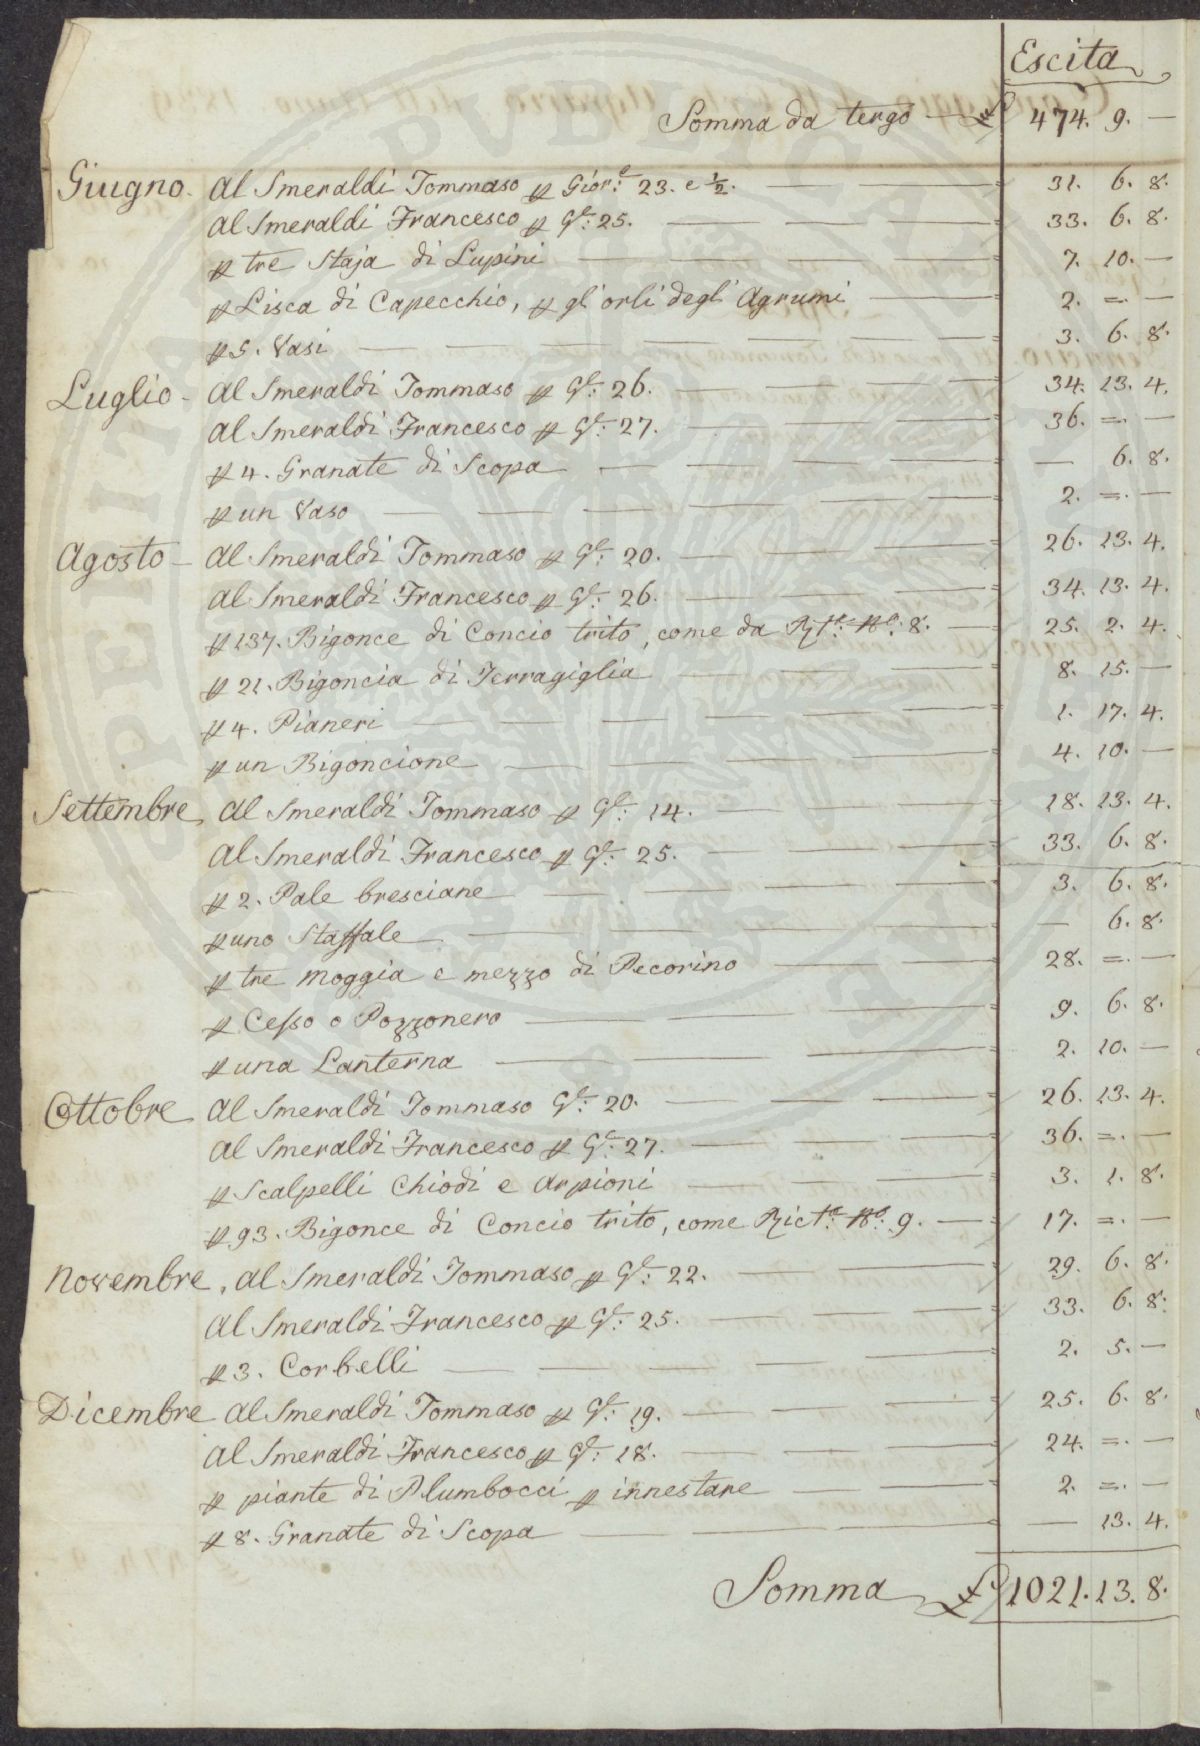 Escita
Somma da tergo — £ 474. 9. —
Giugno. Al Smeraldi Tommaso p Gior.e 23. e ½. — 31. 6. 8.
Al Smeraldi Francesco p G.e 25. — 33. 6. 8.
p tre Staja di Lupini — 7. 10. —
p Lisca di Capecchio, p gl'orli degl'Agrumi — 2. =. —
p 5. Vasi — 3. 6. 8.
Luglio - Al Smeraldi Tommaso p G.e 26. — 34. 13. 4.
Al Smeraldi Francesco p G.e 27. — 36. =. —
p 4. Granate di Scopa — — 6. 8.
p un Vaso — 2. =. —
Agosto - Al Smeraldi Tommaso p G.e 20. — 26. 13. 4.
Al Smeraldi Francesco p G.e 26. — 34. 13. 4.
p 137. Bigonce di Concio trito, come da N.o 8. — 25. 2. 4.
p 21. Bigoncia di Terragiglia — 8. 15. —
p 4. Pianeri — 1. 17. 4.
p un Bigoncione — 4. 10. —
Settembre, Al Smeraldi Tommaso p G.e 14. — 18. 13. 4.
Al Smeraldi Francesco p G.e 25. — 33. 6. 8.
p 2. Pale bresciane — 3. 6. 8.
p uno Staffale — — 6. 8.
p tre moggia e mezzo di Pecorino — 28. =. —
p Cesso o Pozzonero — 9. 6. 8.
p una Lanterna — 2. 10. —
Ottobre Al Smeraldi Tommaso G.e 20. — 26. 13. 4.
Al Smeraldi Francesco p G.e 27. — 36. =. —
p Scalpelli Chiodi e Arpioni — 3. 1. 8.
p 93. Bigonce di Concio trito, come Rict.e N.o 9. — 17. =. —
Novembre, Al Smeraldi Tommaso p G.e 22. — 29. 6. 8.
Al Smeraldi Francesco p G.e 25. — 33. 6. 8.
p 3. Corbelli — 2. 5. —
Dicembre Al Smeraldi Tommaso p G.e 19. — 25. 6. 8.
Al Smeraldi Francesco p G.e 18. — 24. =. —
p piante di Plumbocci p innestare — 2. =. —
p 8. Granate di Scopa — — 13. 4.
Somma £ 1021. 13. 8.